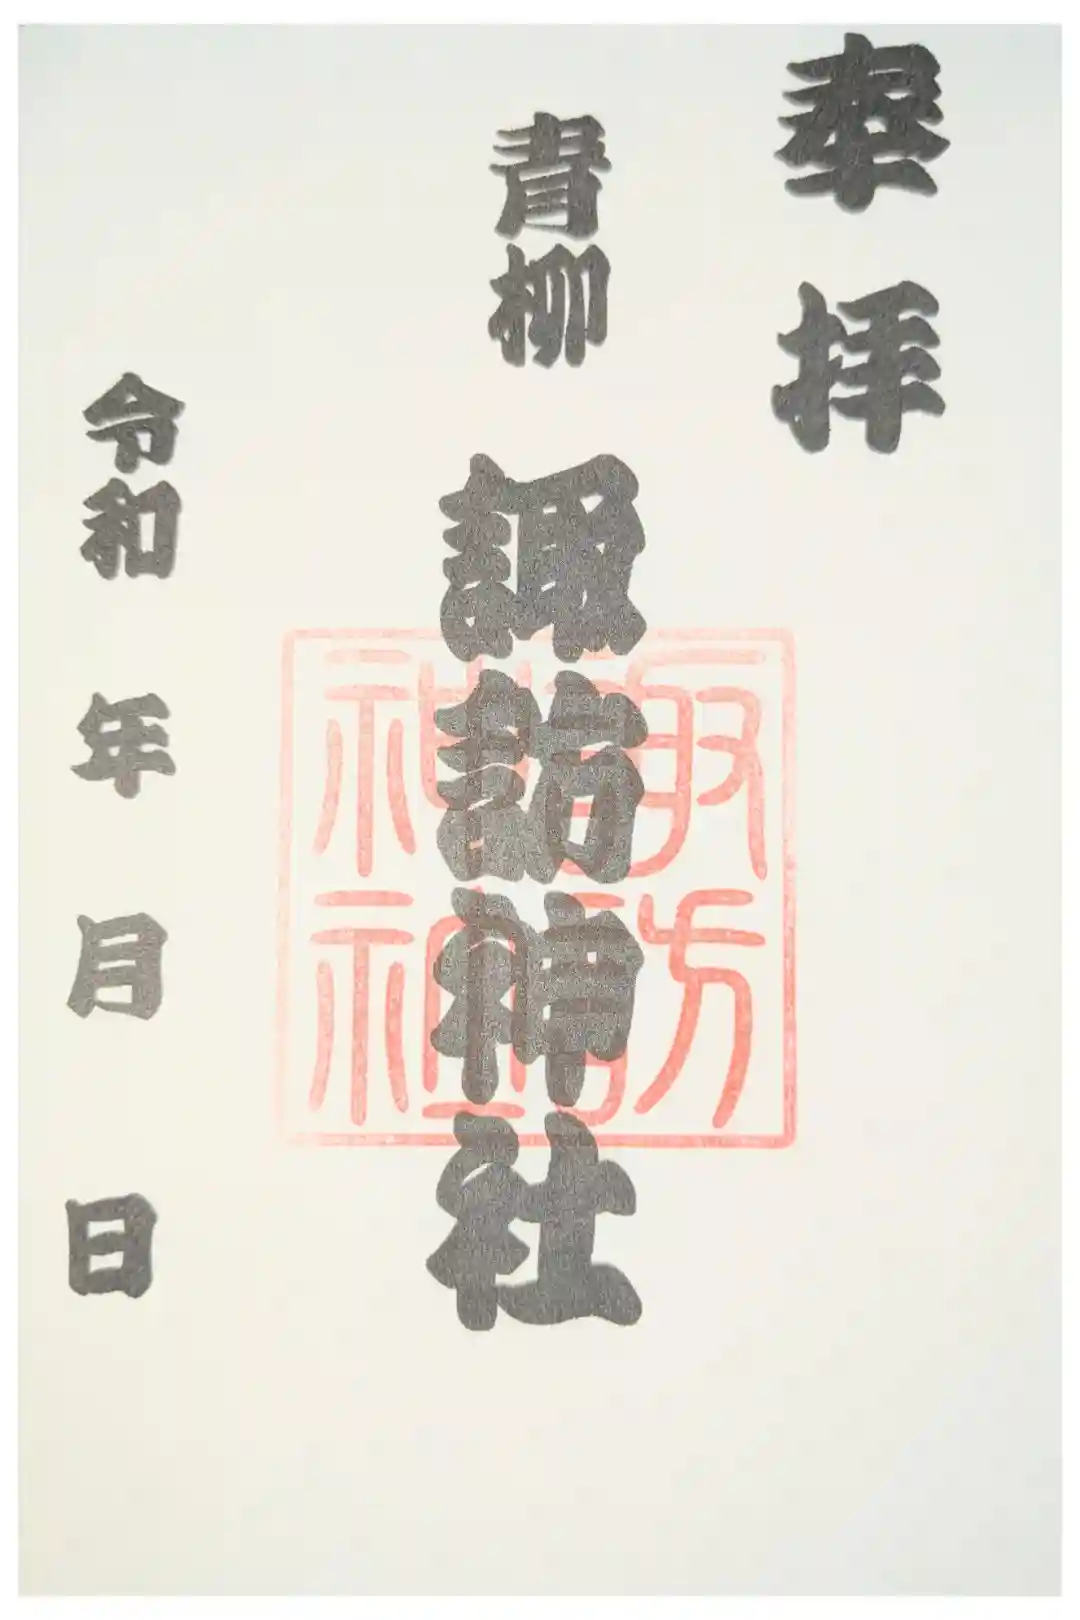 奉拝
青柳
諏訪神社
諏訪
神社
令和 年 月 日